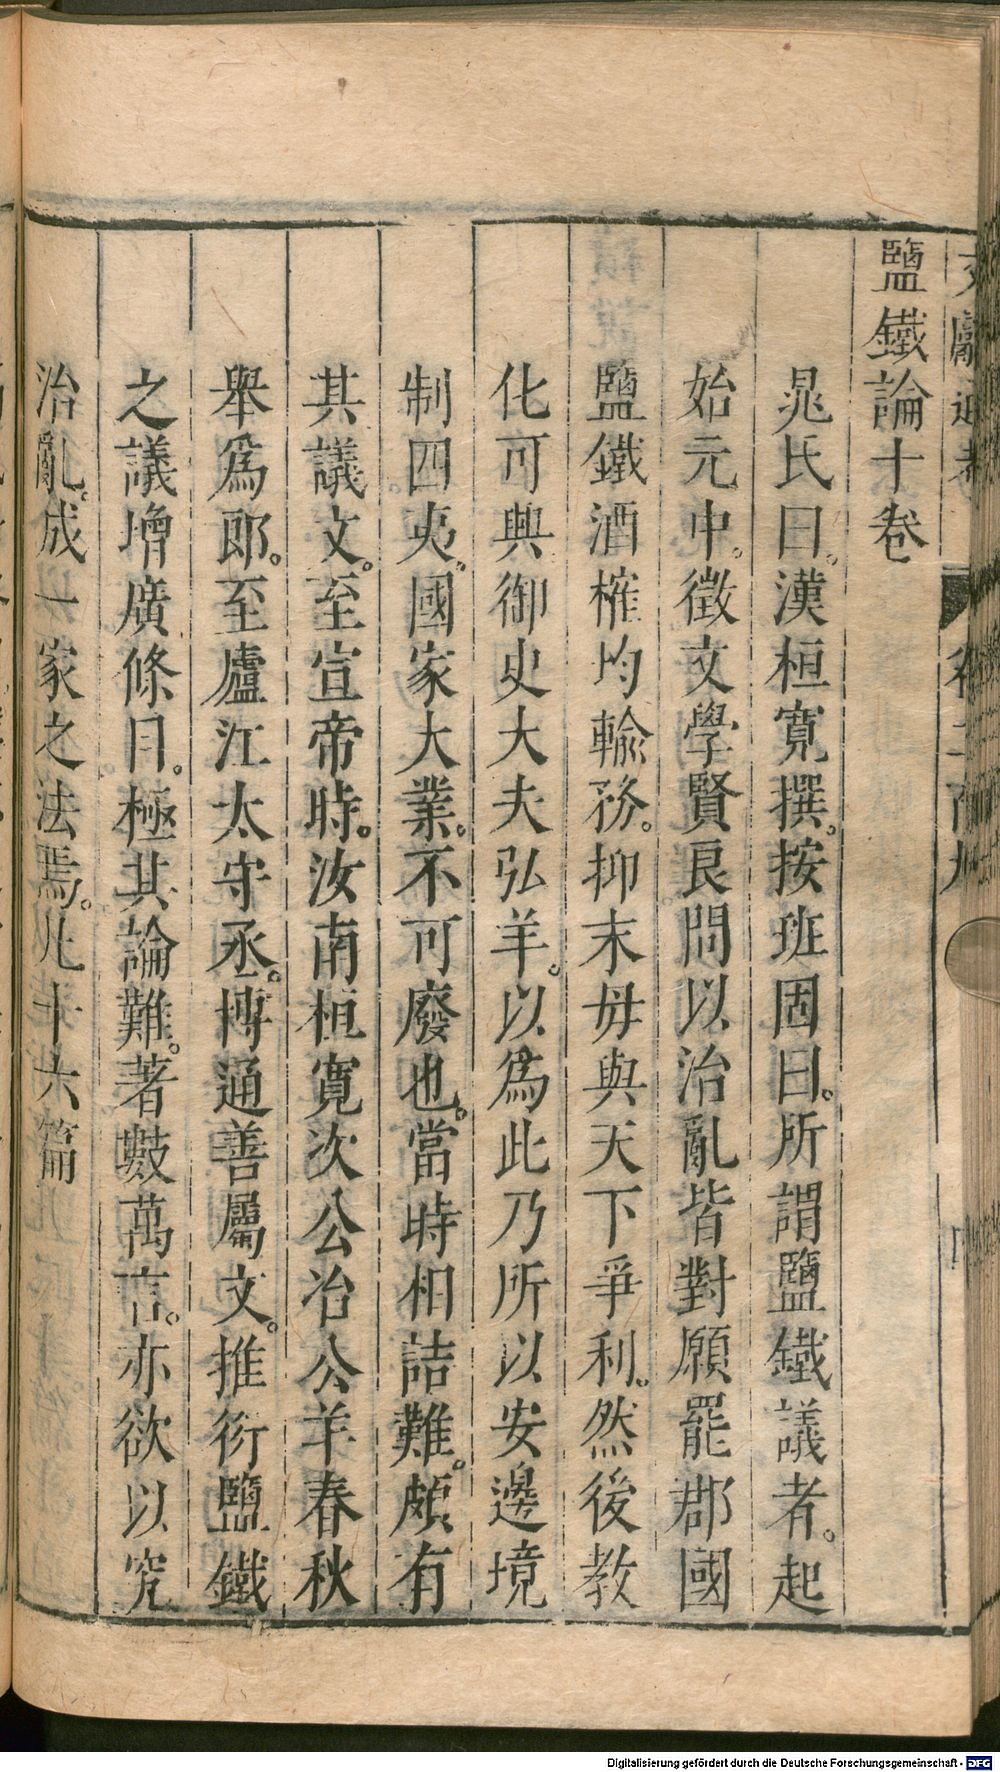 文獻通考
鹽鐵論十卷
晁氏曰漢桓寬撰按班固曰所謂鹽鐵議者起
始元中徵文學賢良問以治亂皆對願罷郡國
鹽鐵酒榷均輸務抑末毋與天下爭利然後教
化可興御史大夫弘羊以為此乃所以安邊境
制四夷國家大業不可廢也當時相詰難頗有
其議文至宣帝時汝南桓寬次公治公羊春秋
舉為郎至廬江太守丞博通善屬文推衍鹽鐵
之議增廣條目極其論難著數萬言亦欲以究
治亂成一家之法焉凡十六篇
Digitalisierung gefördert durch die Deutsche Forschungsgemeinschaft - DFG